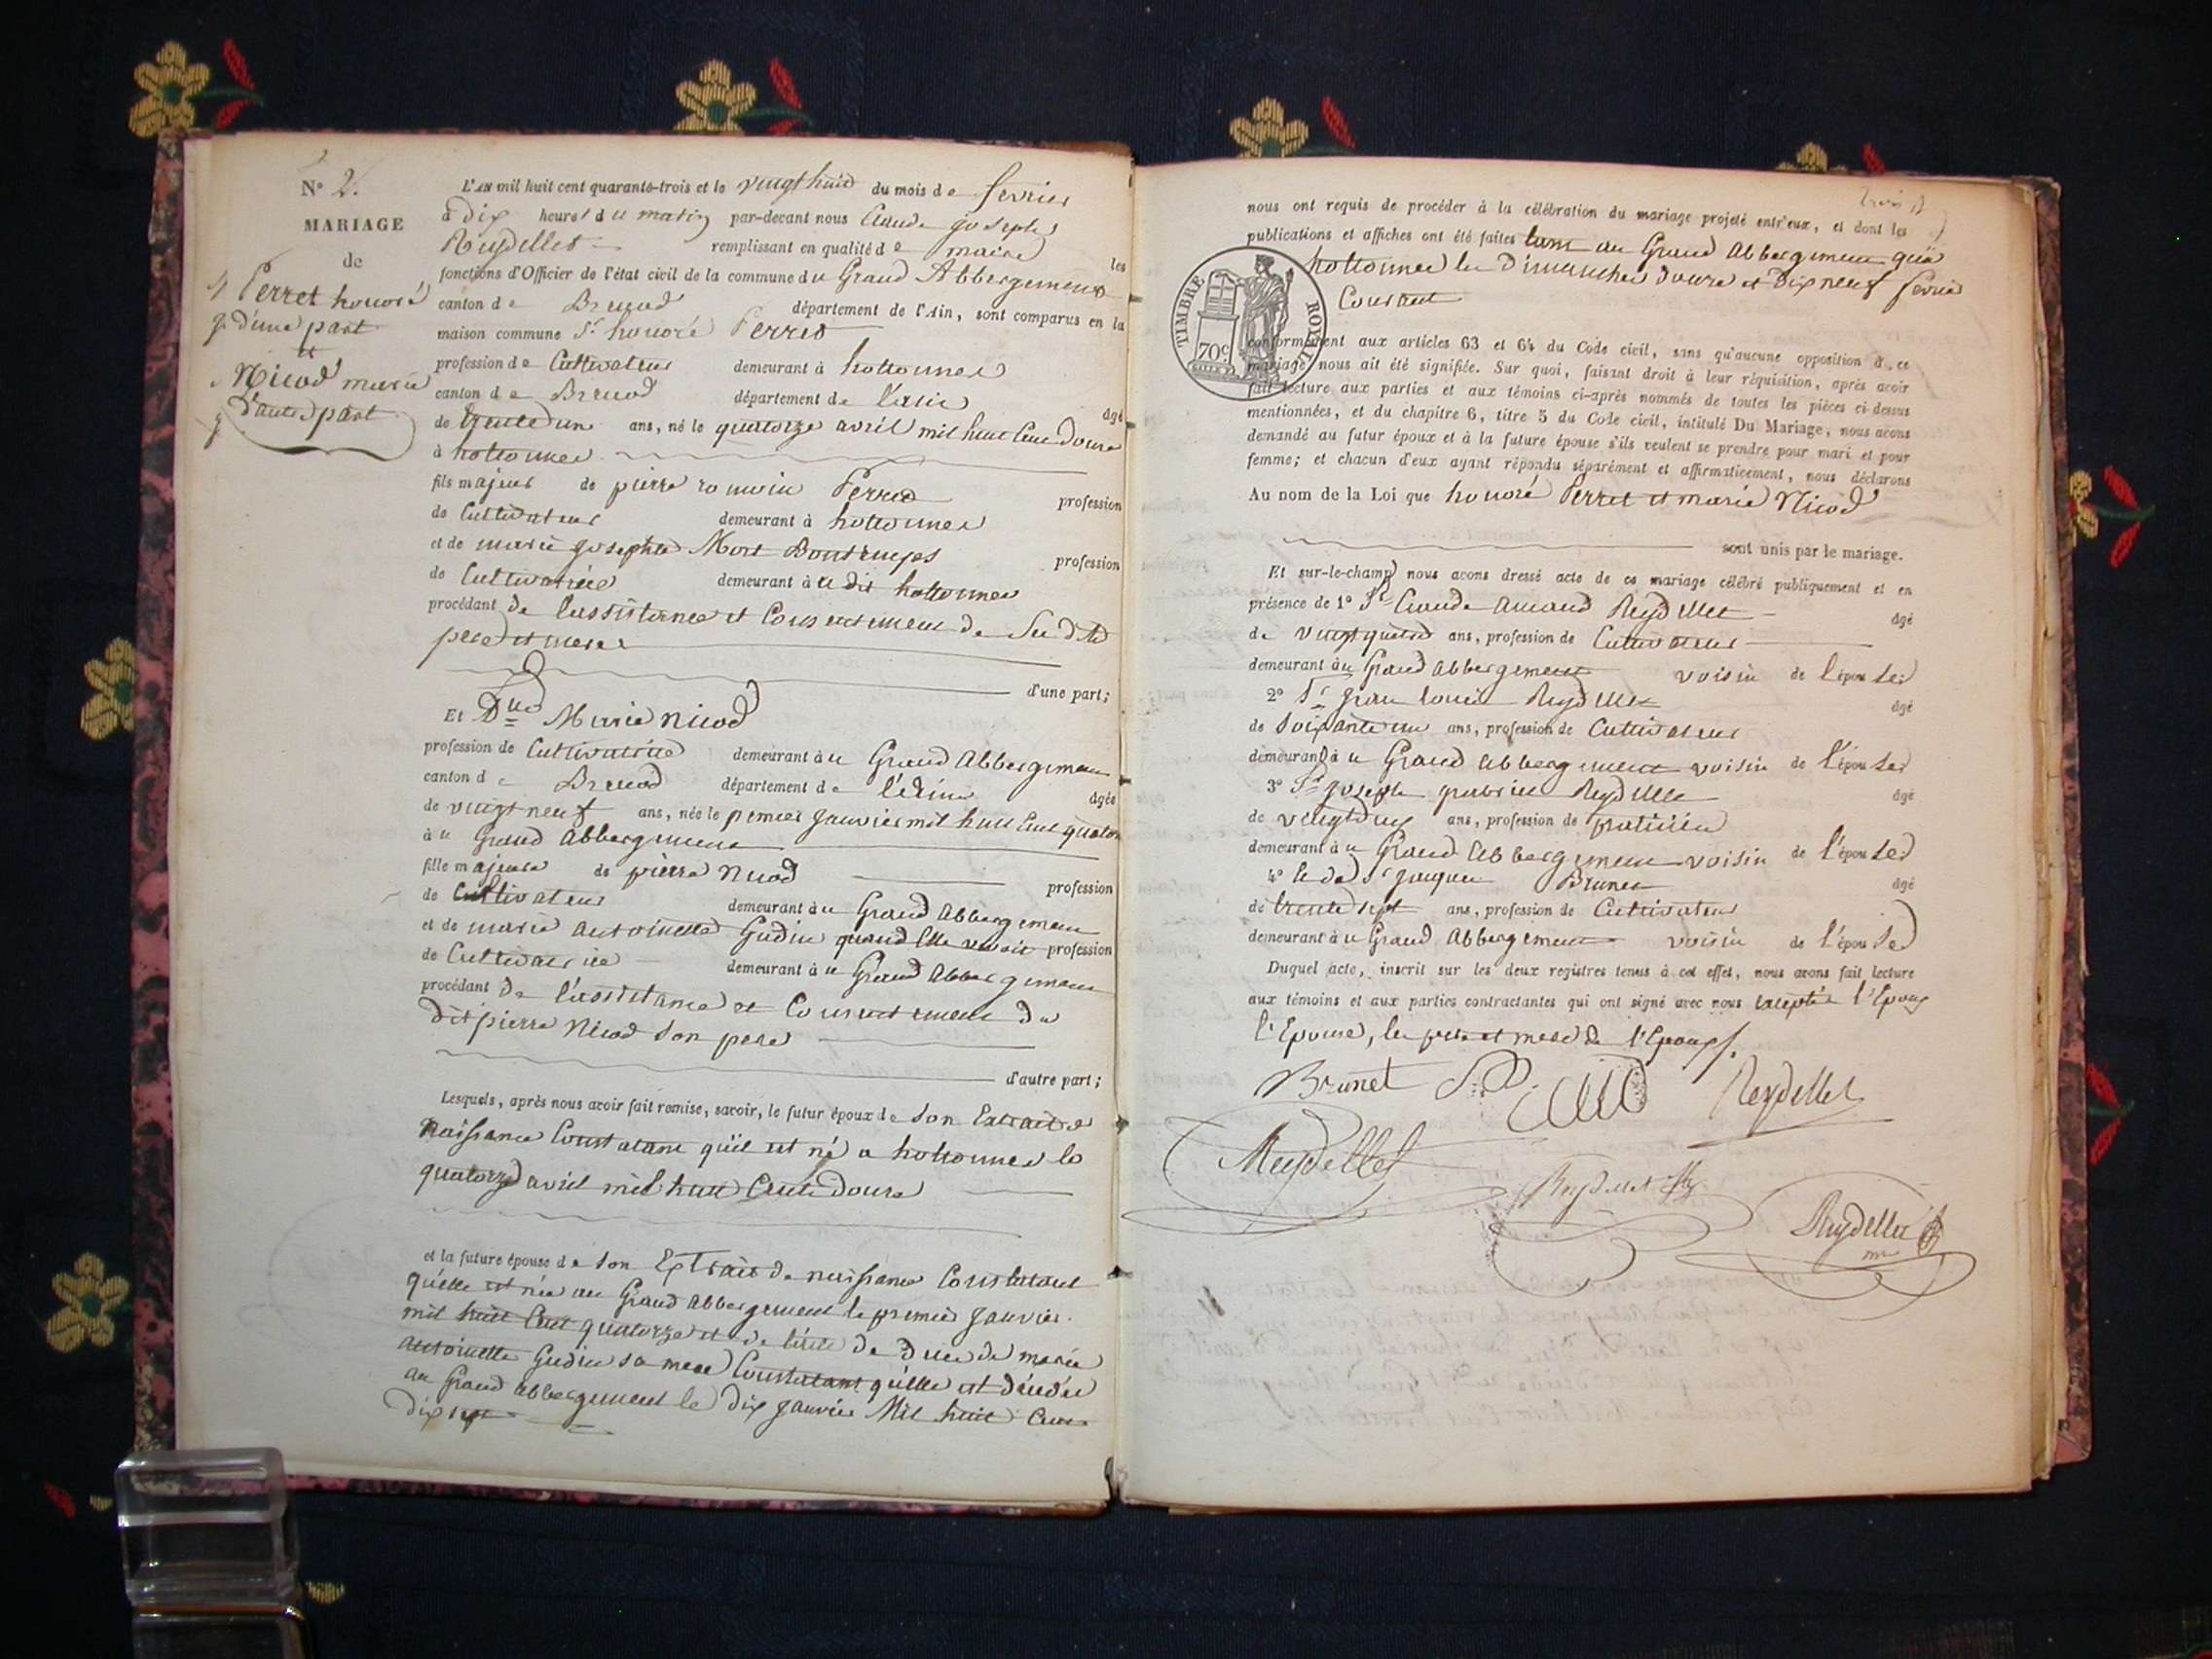 N° 2.
MARIAGE
de
Perret honoré
d'une part
et
Nicod marie
d'autre part
L'AN mil huit cent quarante-trois et le vingt huit du mois de fevrier
à dix heures du matin par-devant nous Claude joseph
Reydellet remplissant en qualité de maire les
fonctions d'Officier de l'état civil de la commune du Grand Abbergement
canton de Brenod département de l'Ain, sont comparus en la
maison commune Sr. honoré Perret
profession de Cultivateur demeurant à hottonnes
canton de Brenod département de l'ain âgé
de trente un ans, né le quatorze avril mil huit Cent douze
à hottonnes
fils majeur de pierre romain Perret profession
de Cultivateur demeurant à hottonnes
et de marie josephte Mort profession
de Cultivatrice demeurant à u dit hottonnes
procédant de l'assistance et Consentement de Sed. ts
pere et mere
d'une part;
Et Dlle Marie nicod
profession de Cultivatrice demeurant à u Grand Abbergement
canton de Brenod département de l'Ain âgée
de vingt neuf ans, née le premier janvier mil huit Cent quatorze
à u Grand Abbergement
fille majeure de pierre nicod profession
de Cultivateur demeurant à u Grand Abbergement
et de marie antoinette Gudin quand Elle vivait profession
de Cultivatrice demeurant à u Grand Abbergement
procédant de l'assistance et Consentement du
dit pierre Nicod Son pere
d'autre part;
Lesquels, après nous avoir fait remise, savoir, le futur époux de Son Extrait de
naissance Constatant qu'il est né a hottonnes le
quatorze avril mil huit Cent douze
et la future épouse de Son Extrait de naissance Constatant
qu'elle est née au Grand Abbergement le premier janvier
mil huit Cent quatorze et de celui de deces de marie
antoinette Gudin sa mere Constatant qu'elle est décédée
au Grand abbergement le dix janvier Mil huit Cent
dix sept
nous ont requis de procéder à la célébration du mariage projeté entr'eux, et dont les
publications et affiches ont été faites tant au Grand Abbergement qu'a
hottonnes les Dimanches douze et dix neuf fevrier
Courant
TIMBRE ROYAL
70c
conformément aux articles 63 et 64 du Code civil, sans qu'aucune opposition à ce
mariage nous ait été signifiée. Sur quoi, faisant droit à leur réquisition, après avoir
fait lecture aux parties et aux témoins ci-après nommés de toutes les pièces ci-dessus
mentionnées, et du chapitre 6, titre 5 du Code civil, intitulé Du Mariage, nous avons
demandé au futur époux et à la future épouse s'ils veulent se prendre pour mari et pour
femme; et chacun d'eux ayant répondu séparément et affirmativement, nous déclarons
Au nom de la Loi que honoré Perret et marie Nicod
sont unis par le mariage.
Et sur-le-champ nous avons dressé acte de ce mariage célébré publiquement et en
présence de 1° Sr Claude Amand Reydellet âgé
de vingt quatre ans, profession de Cultivateur
demeurant à u Grand abbergement voisin de l'épouse
2° Sr jean louis Reydellet âgé
de soixante un ans, profession de Cultivateur
demeurant à u Grand abbergement voisin de l'épouse
3° Sr joseph gabriel Reydellet âgé
de vingt deux ans, profession de praticien
demeurant à u Grand Abbergement voisin de l'épouse
4° et de Sr jacques Brunet âgé
de trente sept ans, profession de Cultivateur
demeurant à u Grand Abbergement voisin de l'épouse
Duquel acte, inscrit sur les deux registres tenus à cet effet, nous avons fait lecture
aux témoins et aux parties contractantes qui ont signé avec nous Excepté l'Epoux
l'Epouse, les pere et mere de l'Epoux.
Brunet Reydellet
Reydellet
Reydellet
Reydellet